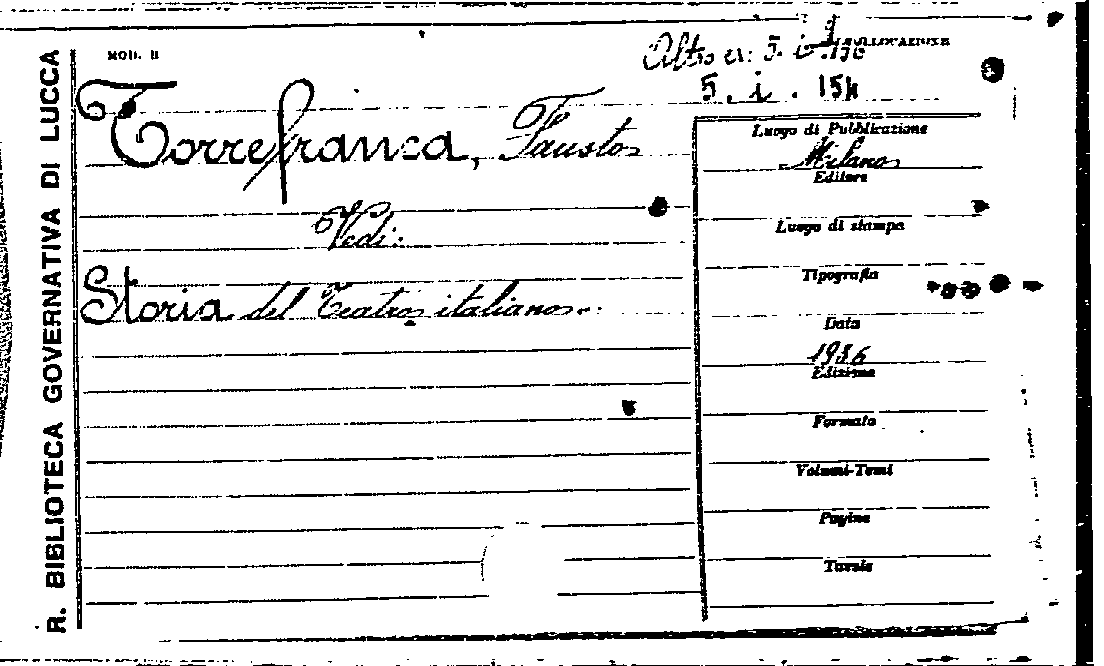 R. BIBLIOTECA GOVERNATIVA DI LUCCA
MOD. B
Altro es: 5. i.
COLLOCAZIONE
5. i. 154
Torrefranca, Fausto
Vedi:
Storia del Teatro italiano.
Luogo di Pubblicazione
Milano
Editore
Luogo di stampa
Tipografia
Data
1936
Edizione
Formato
Volumi-Tomi
Pagine
Tavole